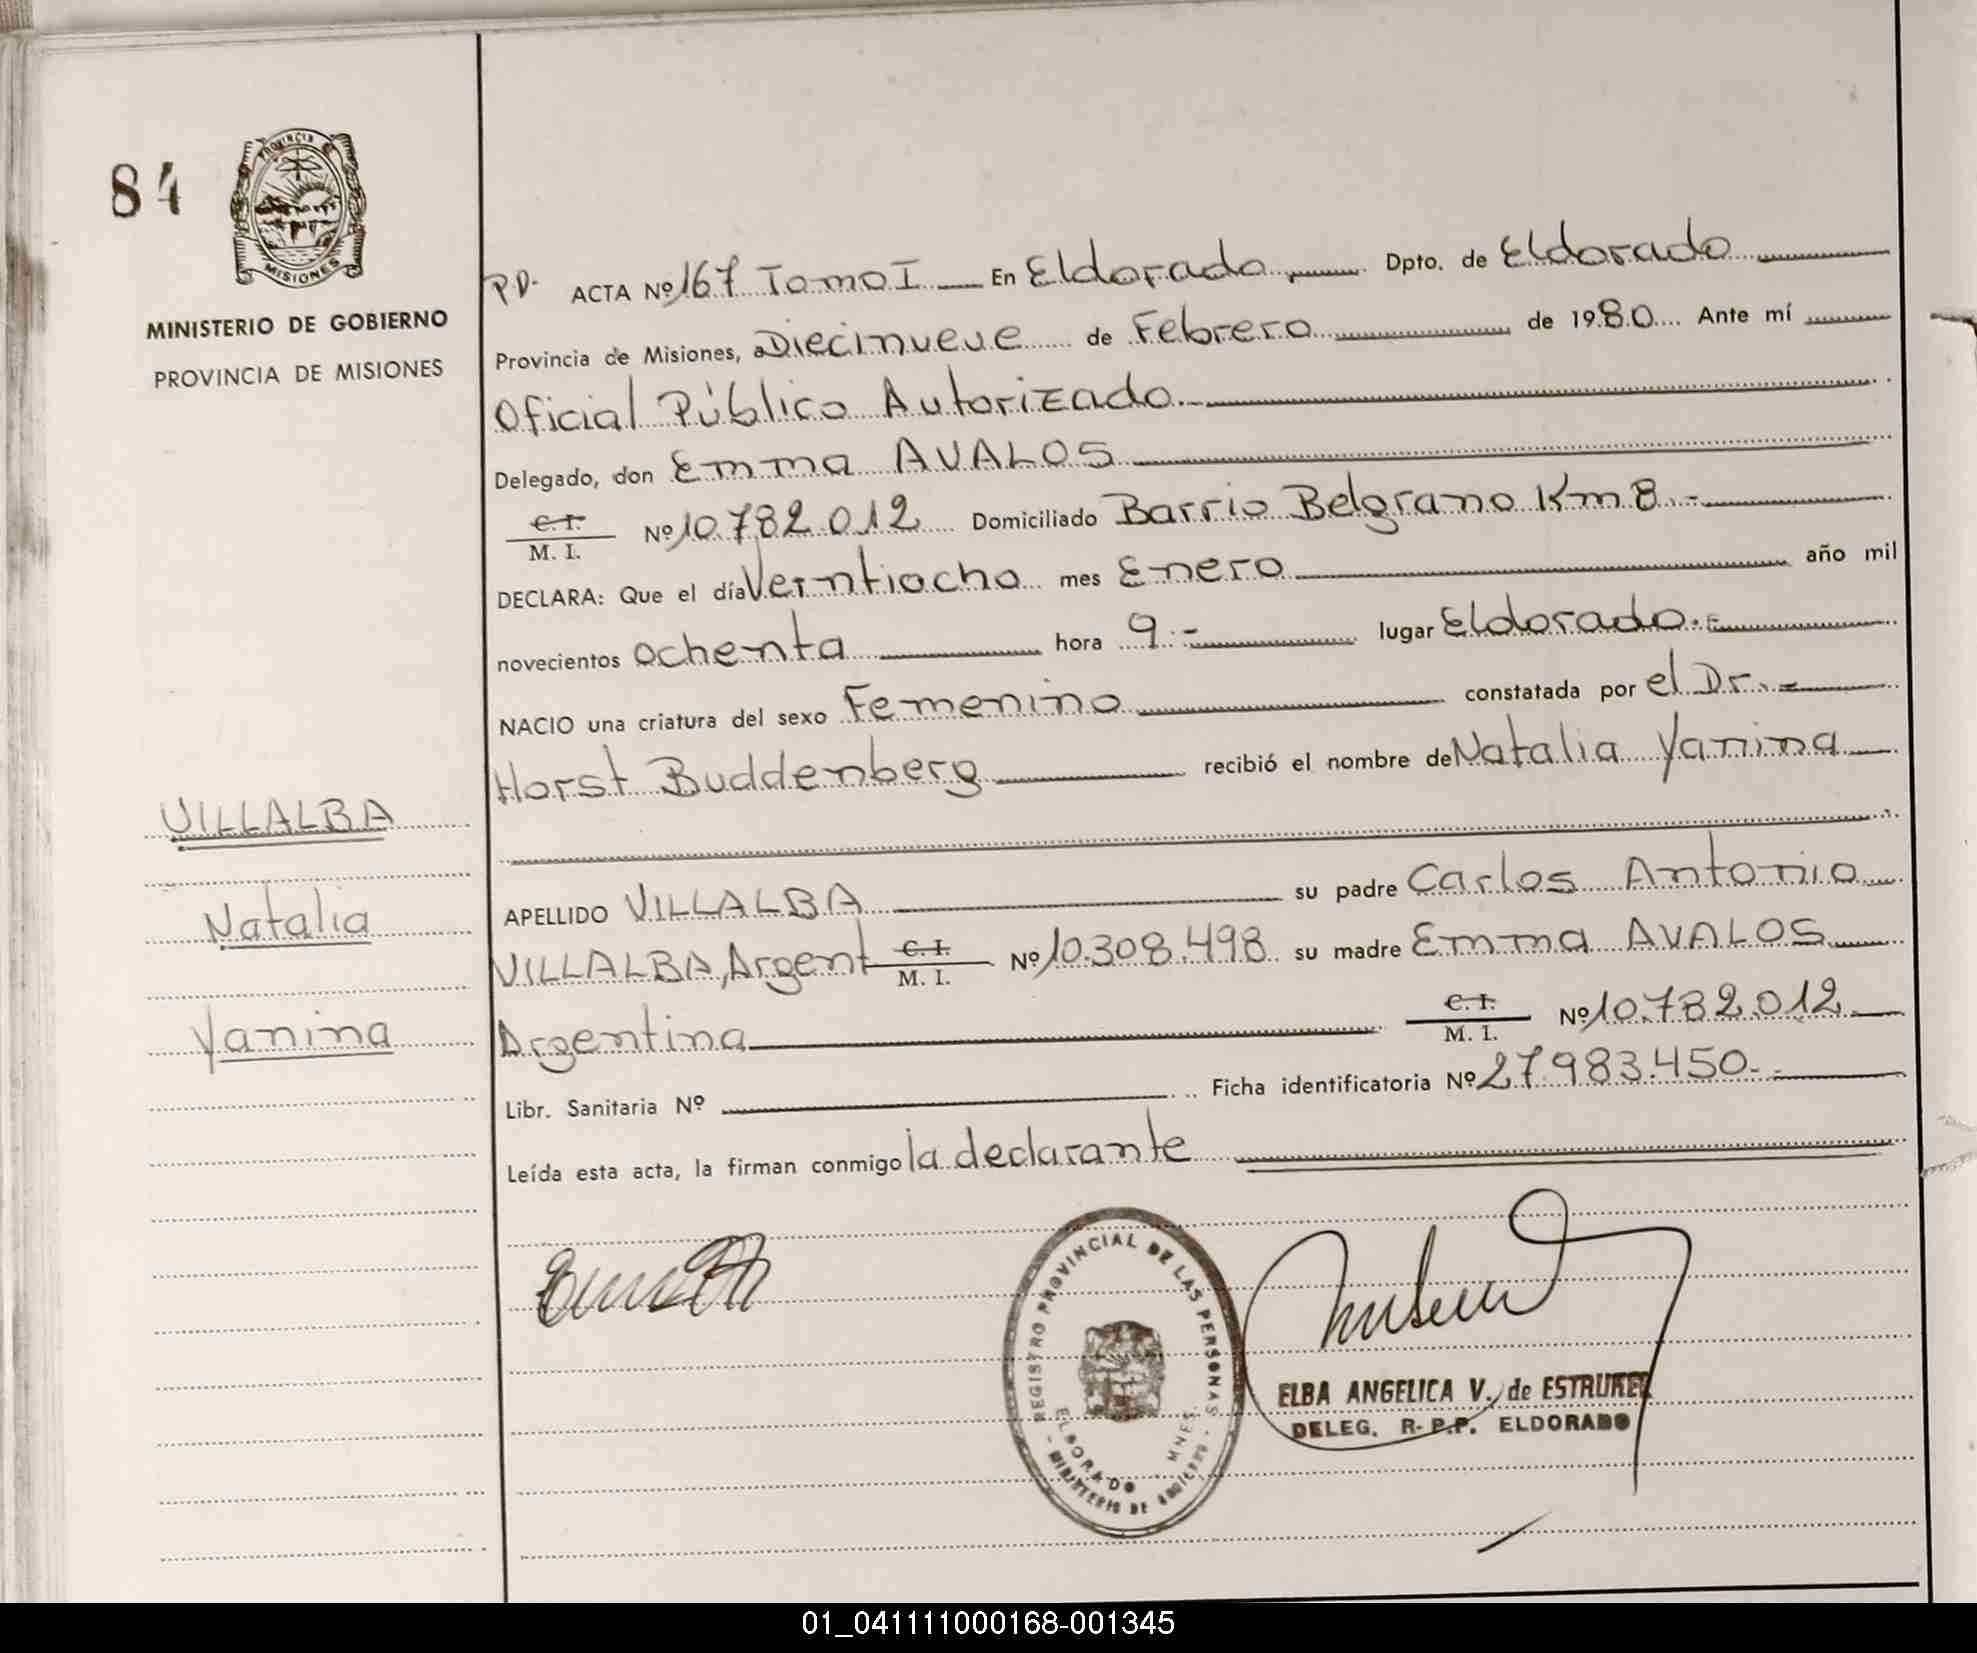 84
PROVINCIA DE
MISIONES
MINISTERIO DE GOBIERNO
PROVINCIA DE MISIONES
P.D. ACTA Nº 167 Tomo I En Eldorado, Dpto. de Eldorado
Provincia de Misiones, a Diecinueve de Febrero de 1980 Ante mí
Oficial Público Autorizado.-
Delegado, don Emma AVALOS
C. I.
M. I. Nº 10.782.012 Domiciliado Barrio Belgrano Km.8.-
DECLARA: Que el día Veintiocho mes Enero año mil
novecientos ochenta hora 9.- lugar Eldorado.-
NACIO una criatura del sexo Femenino constatada por el Dr.-
Horst Buddenberg recibió el nombre de Natalia Yanina
APELLIDO VILLALBA su padre Carlos Antonio
VILLALBA, Argent C. I. M. I. Nº 10.308.498 su madre Emma AVALOS
Argentina C. I. M. I. Nº 10.782.012
Libr. Sanitaria Nº Ficha identificatoria Nº 27.983.450.-
Leída esta acta, la firman conmigo la declarante
VILLALBA
Natalia
Yanina
REGISTRO PROVINCIAL DE LAS PERSONAS
ELDORADO MNES.
- MINISTERIO DE GOBIERNO -
ELBA ANGELICA V. de ESTRUREL
DELEG. R- P.P. ELDORADO
01_041111000168-001345